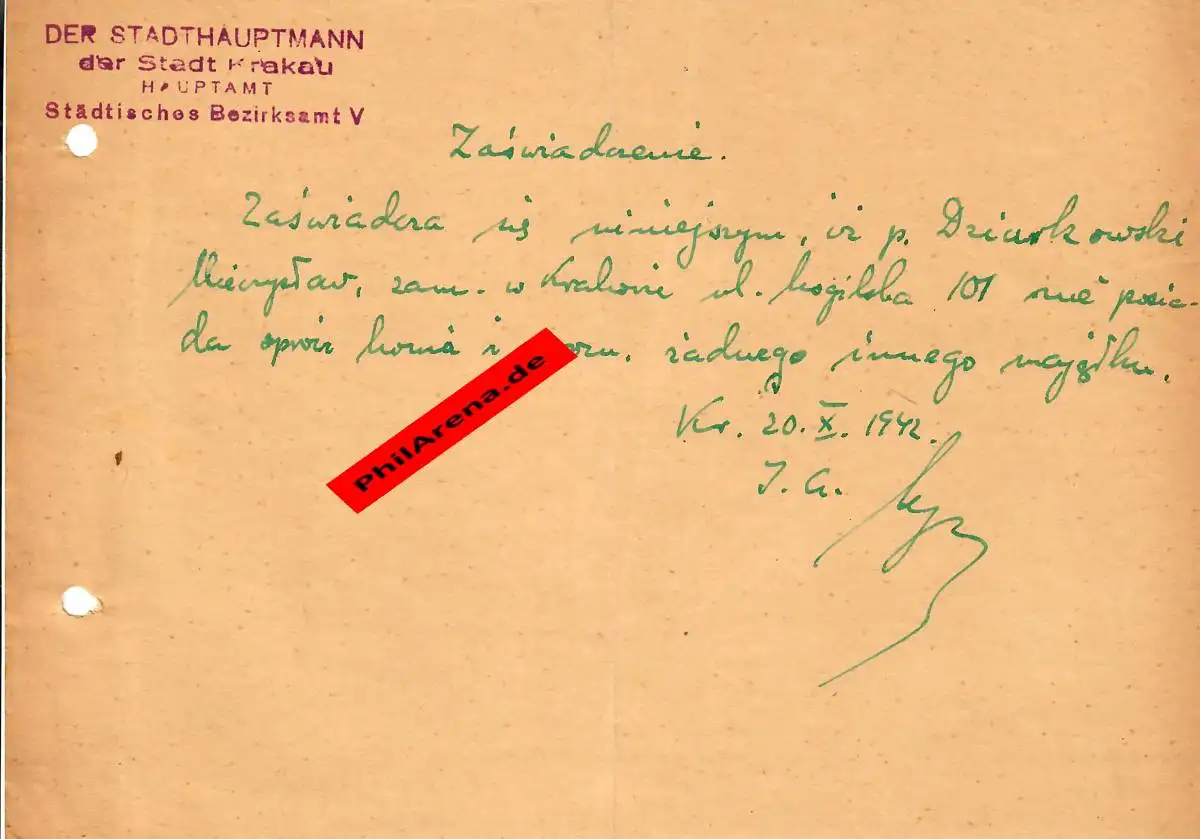 DER STADTHAUPTMANN
der Stadt Krakau
HAUPTAMT
Städtisches Bezirksamt V
Zaświadczenie.
Zaświadcza się niniejszym, iż p. Dziurkowski
Mieczysław, zam. w Krakowie ul. Mogilska 101 nie posia-
da oprócz konia i żadnego innego majątku.
Kr. 20.X.1942.
J. G.
PhilArena.de